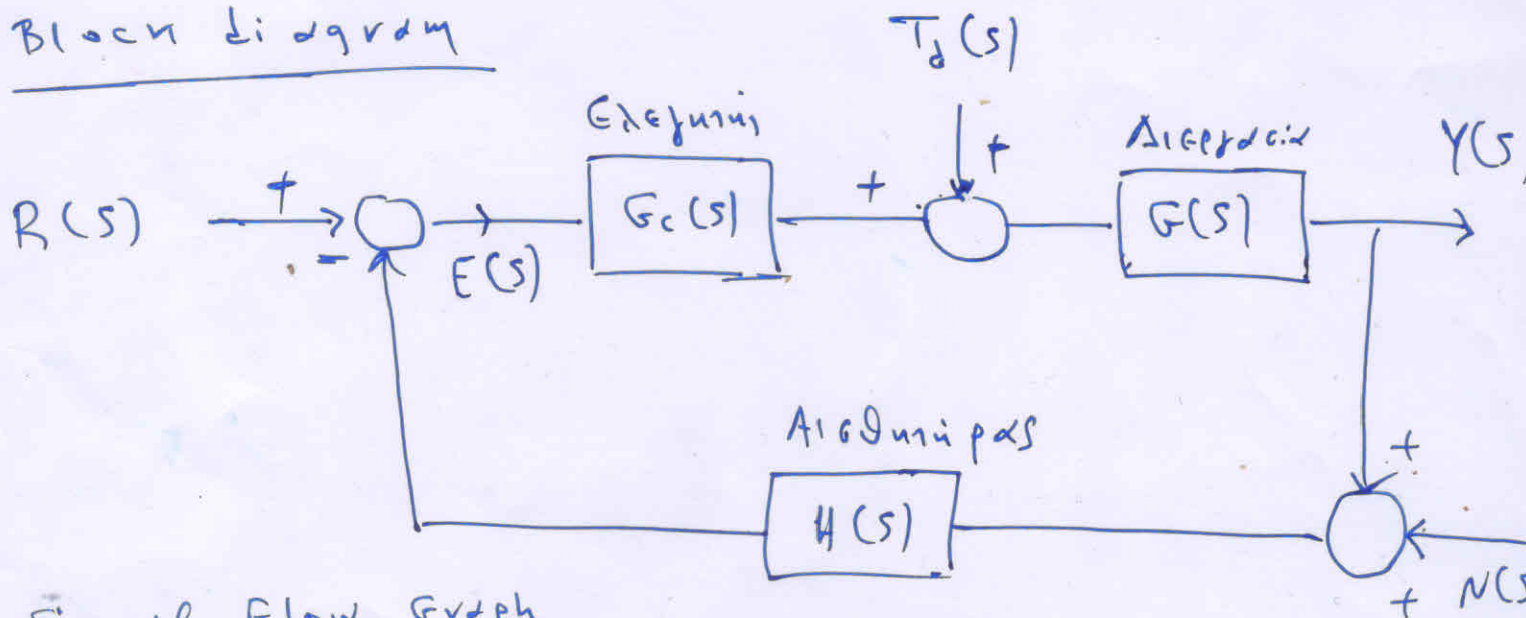 Block diagram
T_d(s)
Ελεγκτής
Διεργασία
Y(s)
R(s)
+
-
E(s)
G_c(s)
+
+
G(s)
Αισθητήρας
H(s)
+
+
N(s
Signal Flow Graph